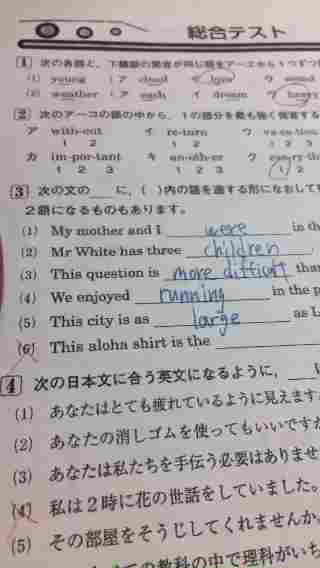 総合テスト
1 次の各語と、下線部の発音が同じ語をア～エから1つずつ
(1) young ア cloud イ love ウ
(2) weather ア each イ dream ウ heavy
2 次のア～コの語の中から、1の部分を最も強く発音する
ア with-out イ re-turn ウ va-ca-tion
1 2 1 2 1 2 3
カ im-por-tant キ an-oth-er ク
1 2 3 1 2 3 1 2
3 次の文の に、( )内の語を適する形になおして
2語になるものもあります。
(1) My mother and I were in th
(2) Mr White has three children
(3) This question is more difficult than
(4) We enjoyed running in the p
(5) This city is as large as L
(6) This aloha shirt is the
4 次の日本文に合う英文になるように、
(1) あなたはとても疲れているように見えます
(2) あなたの消しゴムを使ってもいいですか
(3) あなたは私たちを手伝う必要はありませ
(4) 私は2時に花の世話をしていました。
(5) その部屋をそうじしてくれませんか
の教科の中で理科がいち